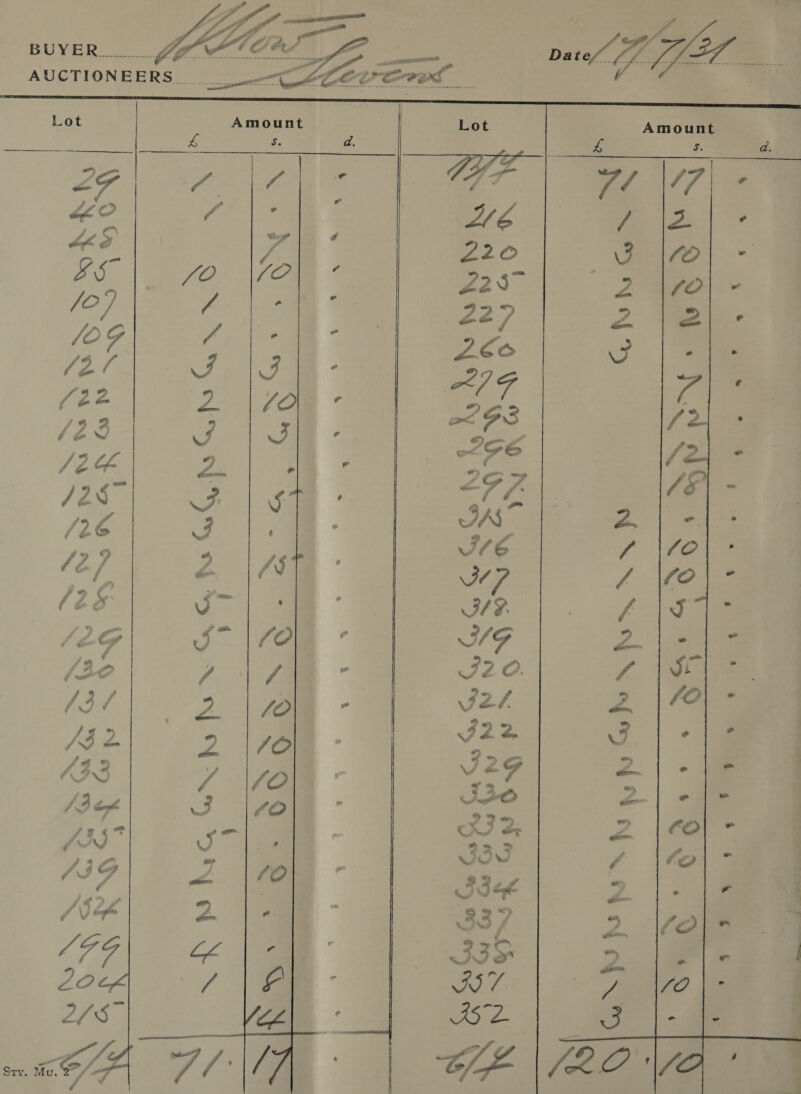 BUYER
Date 17/7/31
AUCTIONEERS Stevens
Lot Amount Lot Amount
£ s. d. £ s. d.
29 1 1 - B/F 71 17 -
40 1 - - 216 1 2 -
48 7 - 220 3 10 -
85 10 10 - 225 2 10 -
107 1 - - 227 2 2 -
109 1 - - 260 3 - -
121 3 3 - 279 7 -
122 2 10 - 293 12 -
123 3 3 - 296 12 -
124 2 - - 297 18 -
125 3 5 - 315 2 - -
126 3 - - 316 1 10 -
127 2 15 - 317 1 10 -
128 5 - - 318 1 5 -
129 5 10 - 319 2 - -
130 1 1 - 320 1 5 -
131 2 10 - 321 2 10 -
132 2 10 - 322 3 - -
133 1 10 - 329 2 - -
134 3 10 - 330 2 - -
135 5 - - 332 2 10 -
139 2 10 - 333 1 10 -
154 2 - - 334 2 - -
199 4 - - 337 2 10 -
204 1 8 - 338 2 - -
215 14 - 351 1 10 -
352 3 - -
Sty. Mu. 2 C/F 71 17 - C/F 120 10 -